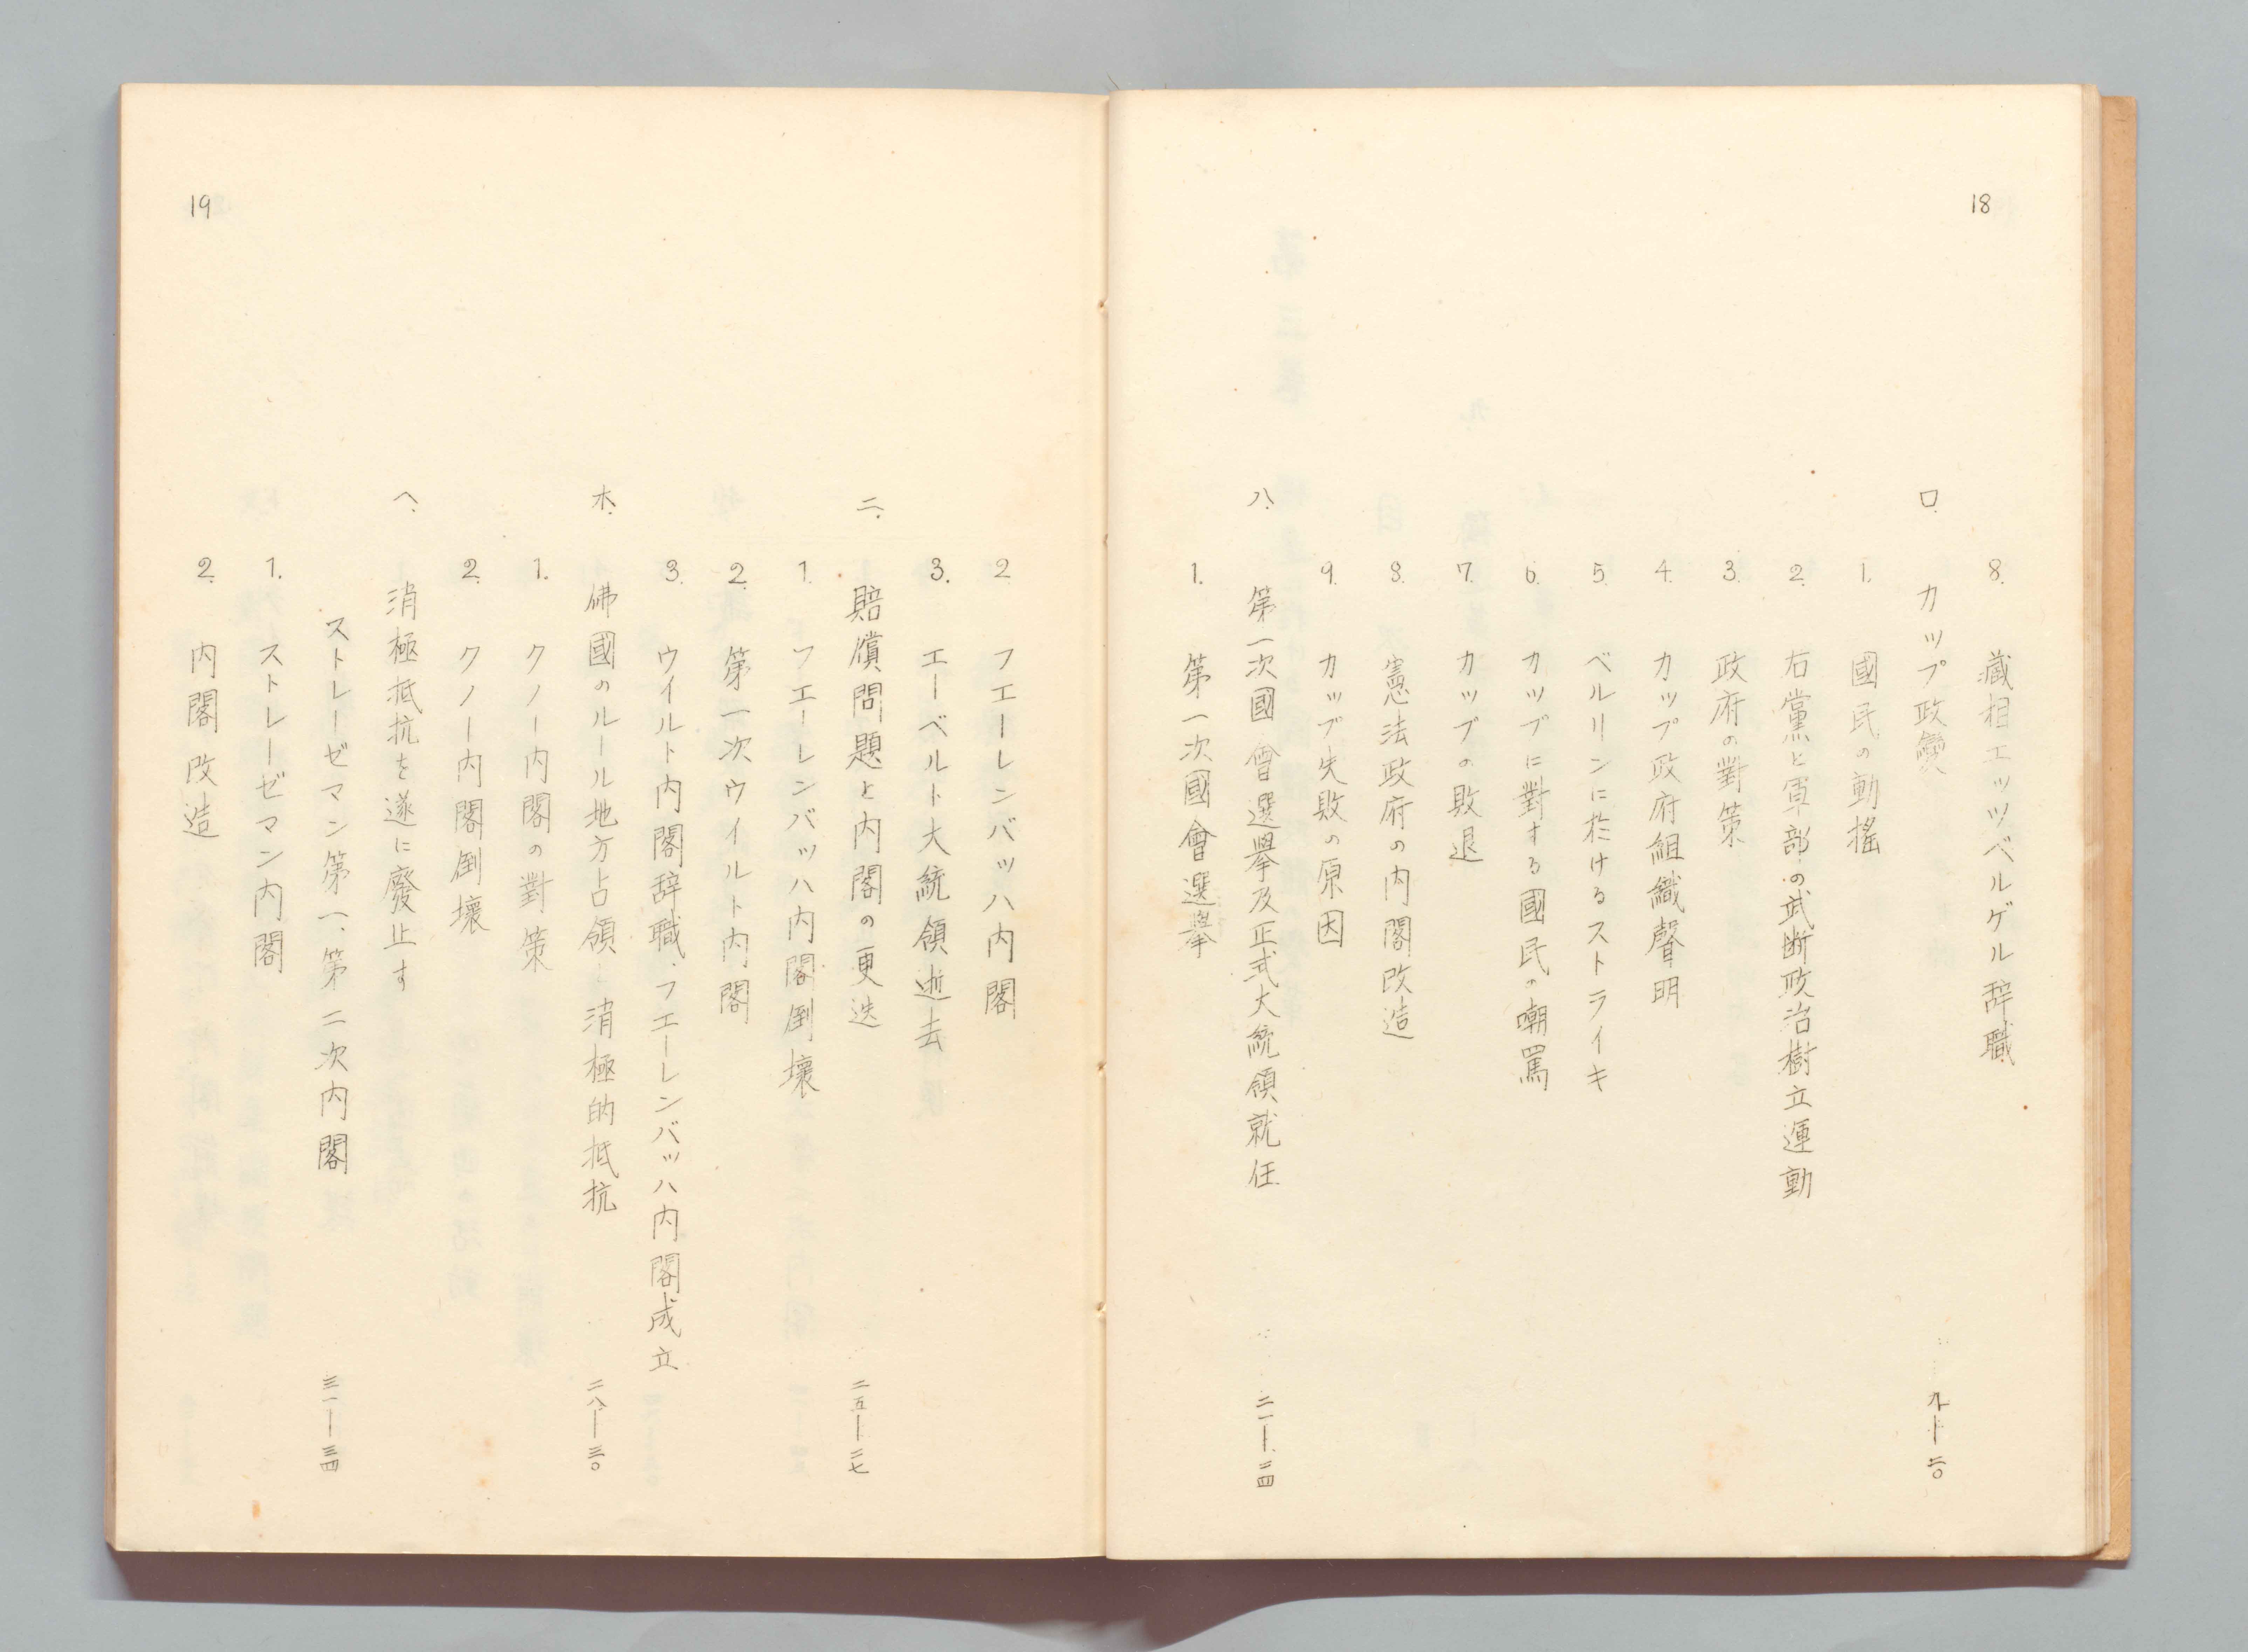 18
8. 蔵相エッツベルゲル辞職
ロ. カップ政變 九―二〇
1. 國民の動搖
2. 右黨と軍部の武断政治樹立運動
3. 政府の對策
4. カップ政府組織聲明
5. ベルリンに於けるストライキ
6. カップに對する國民の嘲罵
7. カップの敗退
8. 憲法政府の内閣改造
9. カップ失敗の原因
ハ. 第一次國會選擧及正式大統領就任 二一―二四
1. 第一次國會選擧
2. フエーレンバッハ内閣
3. エーベルト大統領逝去
ニ. 賠償問題と内閣の更迭 二五―二七
1. フエーレンバッハ内閣倒壞
2. 第一次ウイルト内閣
3. ウイルト内閣辞職・フエーレンバッハ内閣成立
ホ. 佛國のルール地方占領と消極的抵抗 二八―三〇
1. クノー内閣の對策
2. クノー内閣倒壞
ヘ. 消極抵抗を遂に廢止す
ストレーゼマン第一、第二次内閣 三一―三四
1. ストレーゼマン内閣
2. 内閣改造
19